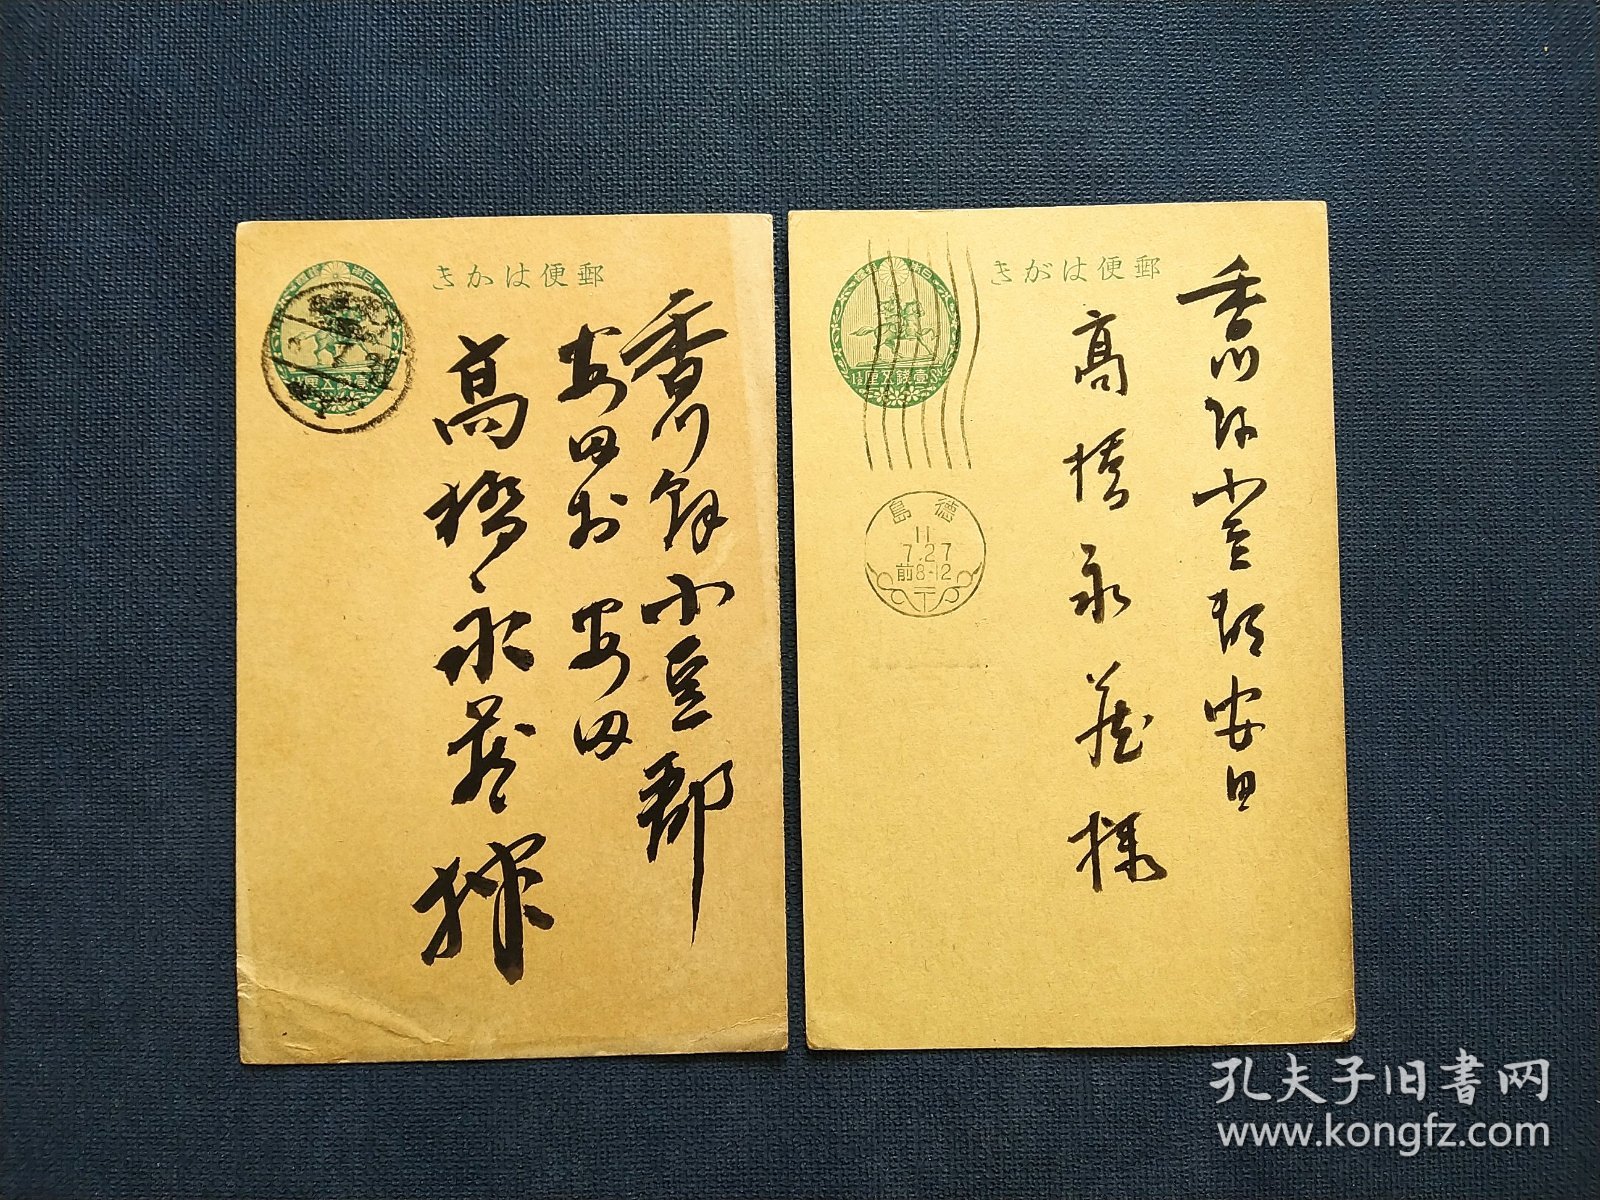 郵便はかき
香川縣小豆郡
安田村 安田
高橋永蔵様
郵便はがき
壹錢五厘
1½Sn
香川縣小豆郡安田
高橋永蔵様
徳島
11
7.27
前8-12
〒
孔夫子旧书网
www.kongfz.com